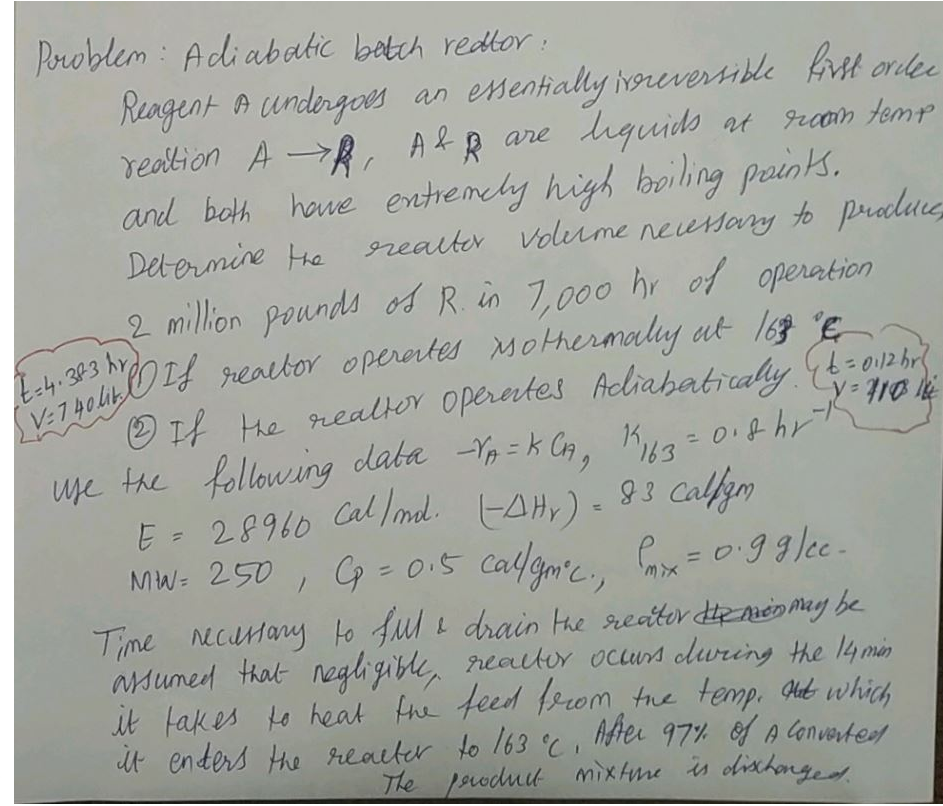 Problem : Adiabatic batch reator :
Reagent A undergoes an essentially irreversible first order
reaition A → R, A & R are liquids at room temp
and both have extremely high boiling points.
Determine the reactor volume necessary to produce
2 million pounds of R. in 7,000 hr of operation
① If reactor operates isothermally at 163 °C
t=4.383 hr
V=740 lit.
② If the reactor operates Adiabatically.
t = 0.12 hr
V =
use the following data -rA = k CA, K163 = 0.8 hr⁻¹
E = 28960 Cal/mol. (-ΔHr) = 83 Cal/gm
MW= 250 , Cp = 0.5 cal/gm°c., ρmix = 0.9 g/cc -
Time necessary to full & drain the reator may be
assumed that negligible, reactor occurs during the 14 min
it takes to heat the feed from the temp. at which
it enters the reacter to 163 °C, After 97% of A Converted
The product mixture is discharged.